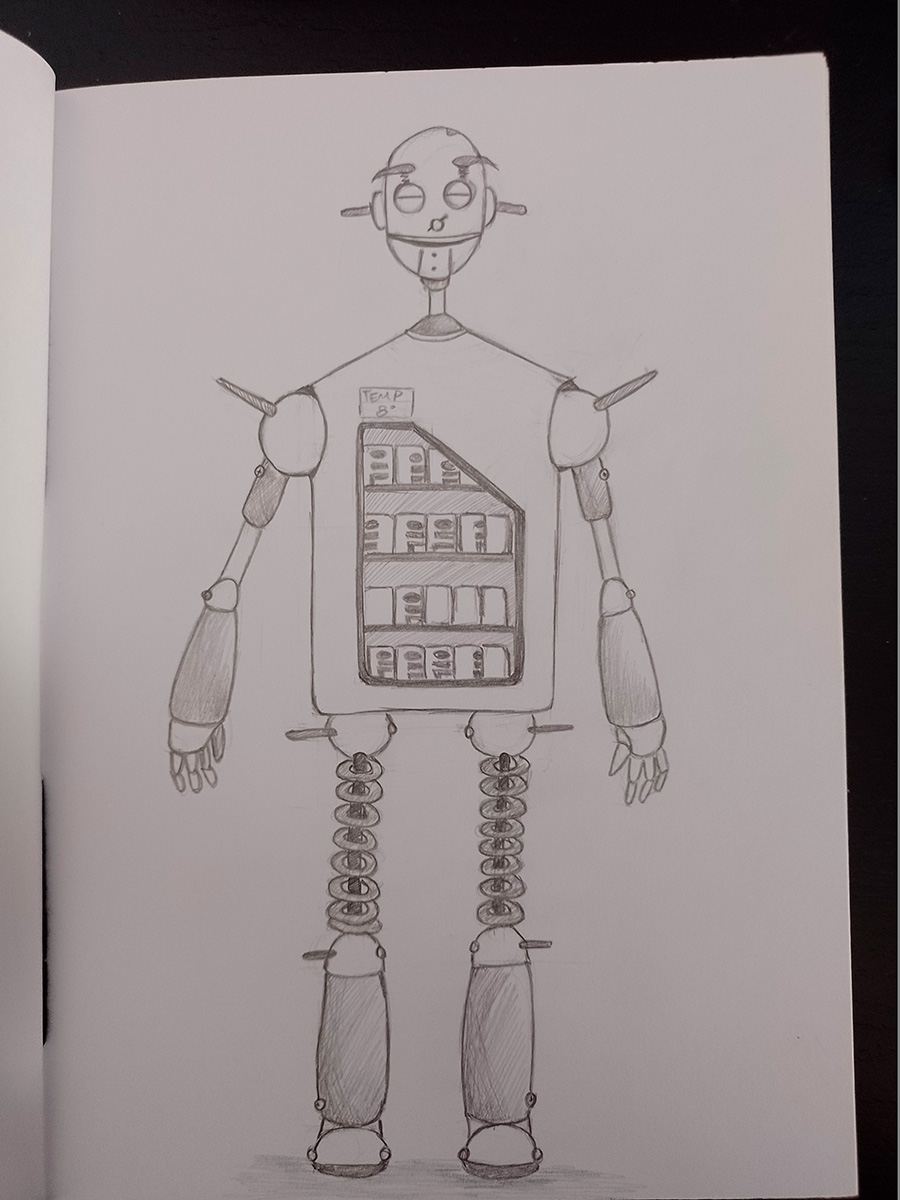 TEMP
8°